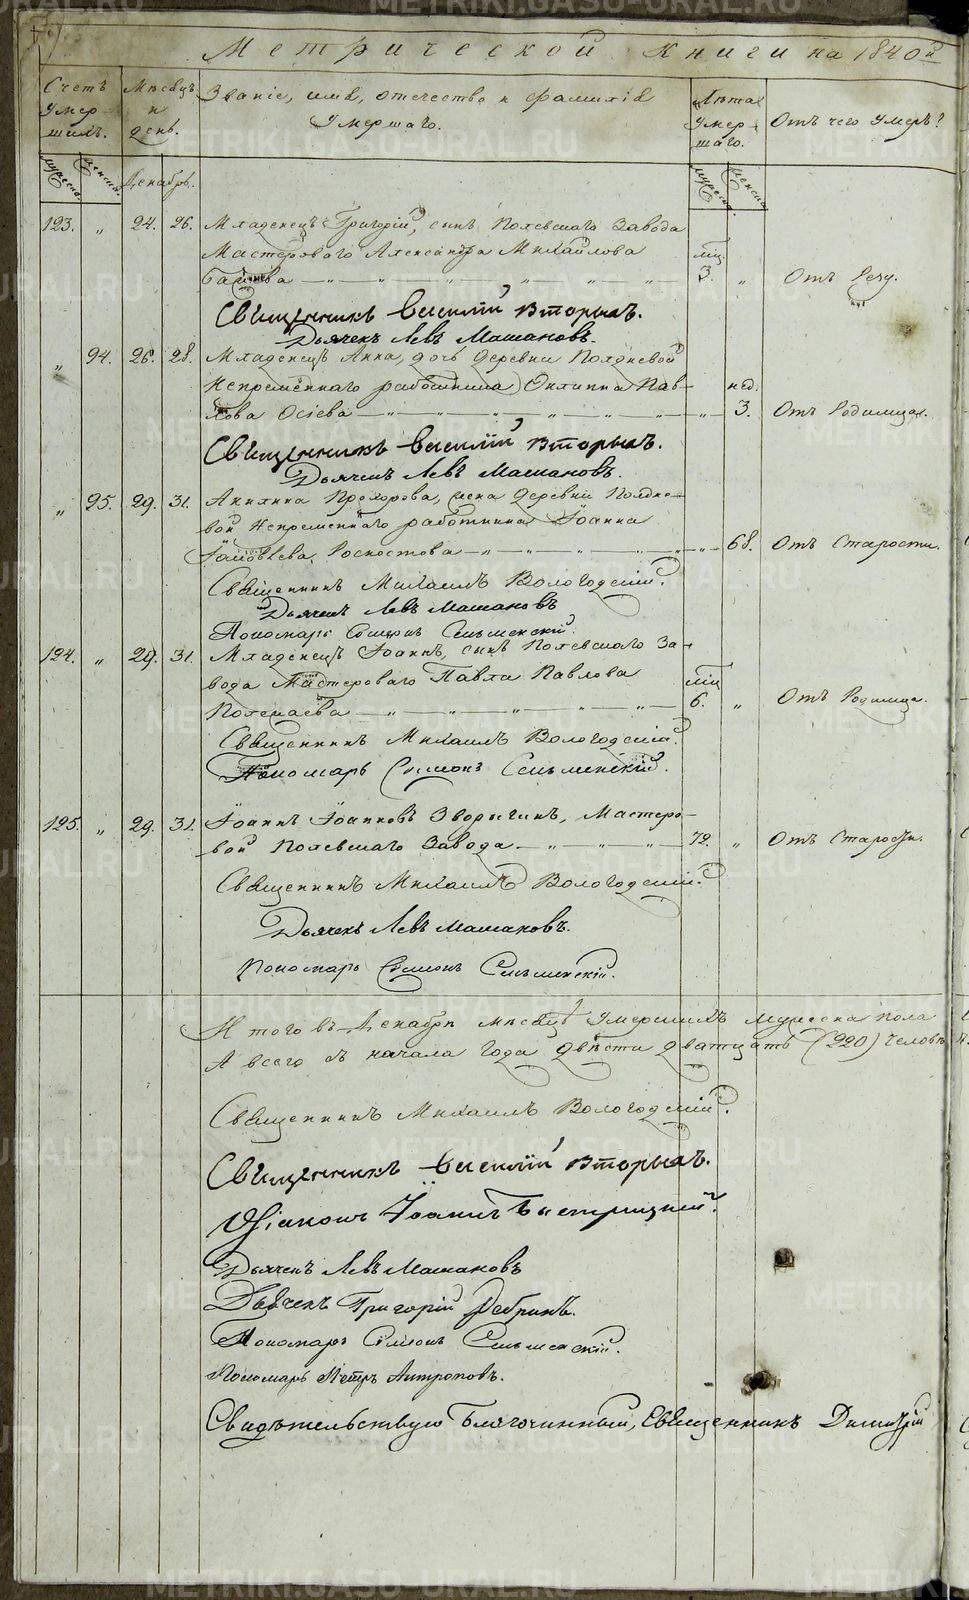 Метрической книги на 1840й
Счетъ Умершихъ. Мѣсяцъ и день. Званіе, имя, отечество и фамилія Умершаго. Лѣта Умершаго. Отъ чего Умеръ?
мужеска. женска. Декабрь. мужеска. женска.
123. „ 24. 26. Младенецъ Григорій, сынъ Полевскаго Завода
Мастероваго Александра Михайлова мѣц.
3. „ Отъ
Священникъ Василій Вторыхъ.
Дьячекъ Левъ Машановъ.
„ 94. 26. 28. Младенецъ Анна, дочь Деревни Полдневой
Непремѣннаго работника Филиппа Пав- нед.
лова Осіева „ 3. Отъ Родимца.
Священникъ Василій Вторыхъ.
Дьячекъ Левъ Машановъ.
„ 95. 29. 31. Акилина Прохорова, жена Деревни Полдне-
вой Непремѣннаго работника Іоанна
„ 68. Отъ Старости.
Священникъ Михаилъ Вологодскій.
Дьячекъ Левъ Машановъ
Пономарь Симеонъ Сельменскій.
124. „ 29. 31. Младенецъ Іоаннъ, сынъ Полевскаго За-
вода Мастероваго Павла Павлова мѣц
6. „ Отъ Родимца.
Священникъ Михаилъ Вологодскій.
Пономарь Симеонъ Сельменскій.
125. „ 29. 31. Іоаннъ Іоанновъ Зворыгинъ, Мастеро-
вой Полевскаго Завода 72. „ Отъ Старости.
Священникъ Михаилъ Вологодскій.
Дьячекъ Левъ Машановъ.
Пономарь Симеонъ Сельменскій.
Итого въ Декабрѣ мѣсяцѣ Умершихъ мужеска пола
А всего съ начала года двѣсти дватцать (220) человѣ
Священникъ Михаилъ Вологодскій.
Священникъ Василій Вторыхъ.
Діаконъ Іоаннъ Быстрицкій.
Дьячекъ Левъ Машановъ
Дьячекъ Григорій
Пономарь Симеонъ Сельменскій.
Пономарь Петръ Антроповъ.
Свидѣтельствую Благочинный, Священникъ Димитрій
METRIKI.GASO-URAL.RU